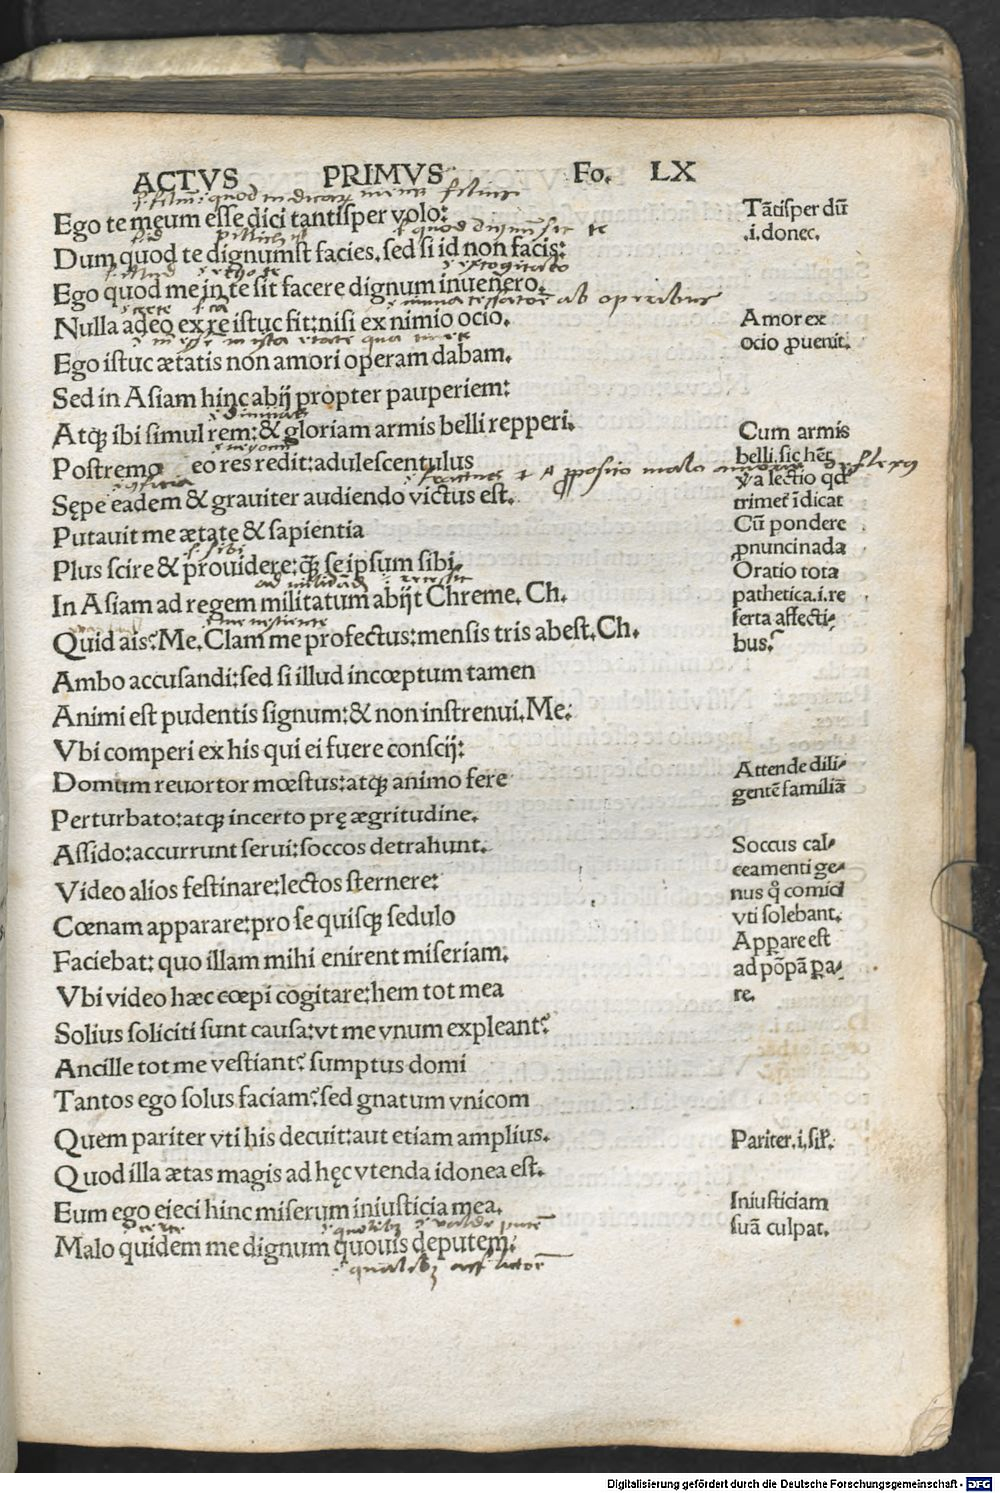 ACTVS PRIMVS Fo. LX
Ego te meum esse dici tantisper volo:
Dum quod te dignumst facies. sed si id non facis:
Ego quod me in te sit facere dignum inuenero.
Nulla adeo ex re istuc fit: nisi ex nimio ocio.
Ego istuc ætatis non amori operam dabam.
Sed in Asiam hinc abij propter pauperiem:
Atqꝫ ibi simul rem: & gloriam armis belli repperi.
Postremo eo res redit: adulescentulus
Sępe eadem & grauiter audiendo victus est.
Putauit me ætate & sapientia
Plus scire & prouidere: qꝫ̃ se ipsum sibi.
In Asiam ad regem militatum abijt Chreme. Ch.
Quid ais? Me. Clam me profectus: mensis tris abest. Ch.
Ambo accusandi: sed si illud incœptum tamen
Animi est pudentis signum: & non instrenui. Me:
Vbi comperi ex his qui ei fuere conscij:
Domum reuortor mœstus: atqꝫ animo fere
Perturbato: atqꝫ incerto prę ægritudine.
Assido: accurrunt serui: soccos detrahunt.
Video alios festinare: lectos sternere:
Cœnam apparare: pro se quisqꝫ sedulo
Faciebat: quo illam mihi enirent miseriam:
Vbi video hæc cœpi cogitare: hem tot mea
Solius soliciti sunt causa: vt me vnum expleant?
Ancille tot me vestiant? sumptus domi
Tantos ego solus faciam? sed gnatum vnicom
Quem pariter vti his decuit: aut etiam amplius.
Quod illa ætas magis ad hęc vtenda idonea est.
Eum ego eieci hinc miserum iniusticia mea.
Malo quidem me dignum quouis deputem:
Tãtisper dũ
.i. donec.
Amor ex
ocio ꝓuenit.
Cum armis
belli. sic hẽt
v̾a lectio qd̾
trimet̾ ĩdicat
Cũ pondere
ꝓnuncinada
Oratio tota
pathetica .i. re
ferta affecti⸗
bus?
Attende dili⸗
gentẽ familiã
Soccus cal⸗
ceamenti ge⸗
nus q̃ comici
vti solebant.
Apꝑare est
ad põpã ꝑa⸗
re.
Pariter .i. sil̾.
Iniusticiam
suã culpat.
Digitalisierung gefördert durch die Deutsche Forschungsgemeinschaft - DFG